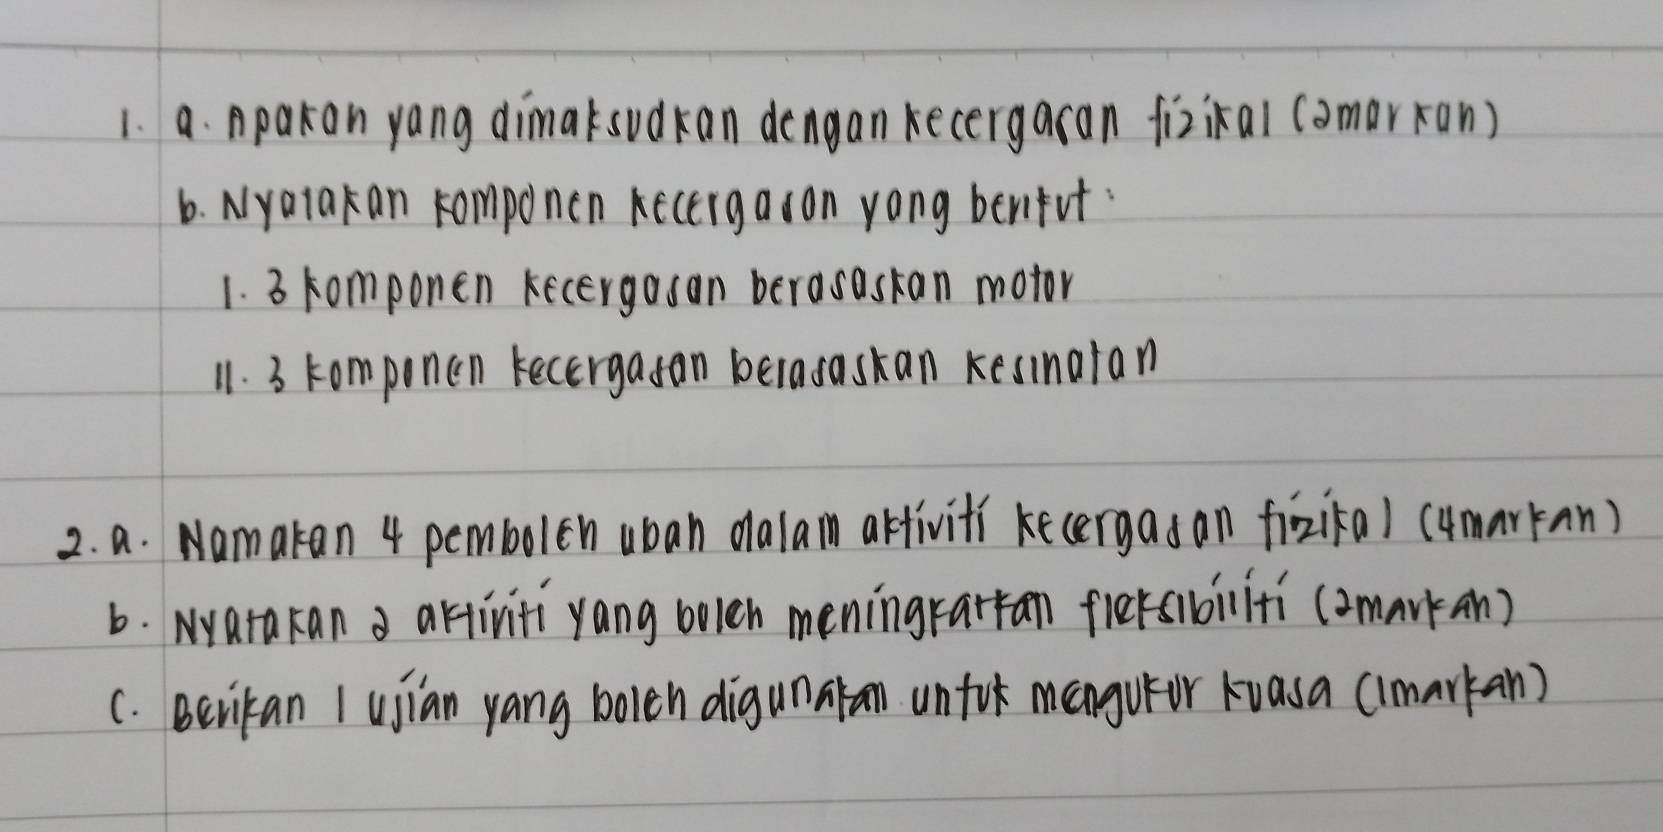 1. a. Apakah yang dimaksudkan dengan kecergasan fizikal (2markah)
b. Nyatakan komponen kecergasan yang berikut:
1. 3 komponen kecergasan berasaskan motor
11. 3 komponen kecergasan berasaskan kesihatan
2. a. Namakan 4 pemboleh ubah dalam aktiviti kecergasan fizikal (4markah)
b. Nyatakan 2 aktiviti yang boleh meningkatkan fleksibiliti (2markah)
c. Berikan 1 ujian yang boleh digunakan untuk mengukur kuasa (1markah)